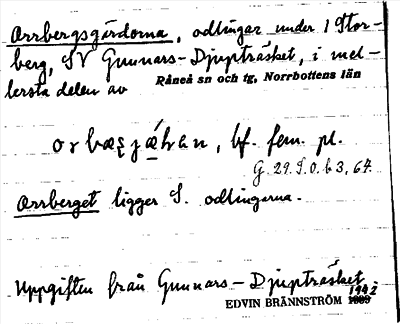 Orrbergsgårdorna, odlingar under 1 Stor-
berg, SV Gunnars-Djupträsket, i mel-
lersta delen av
Råneå sn och tg, Norrbottens län
bf. fem. pl.
G. 29. S. 0. b 3, 64.
Orrberget ligger S. odlingarna.
Uppgiften från Gunnars-Djupträsket.
1942
EDVIN BRÄNNSTRÖM